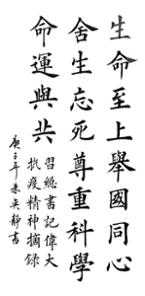 生命至上舉國同心
舍生忘死尊重科學
命運與共
習總書記偉大
抗疫精神摘錄
庚子年 靜書